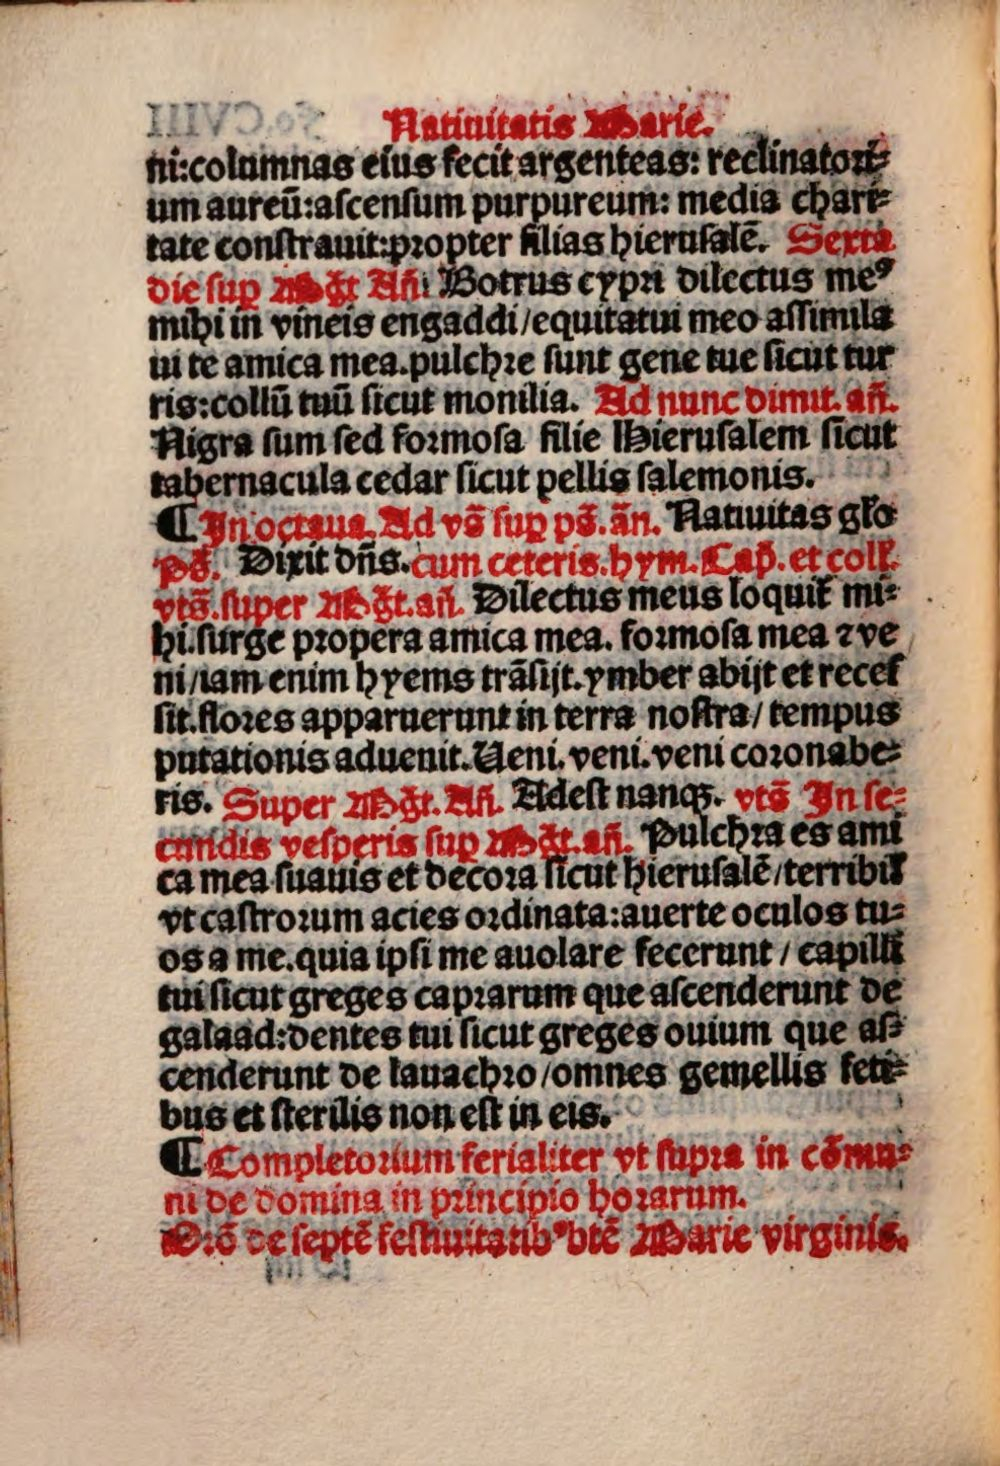 Natiuitatis Marie.
ni:columnas eius fecit argenteas: reclinatori⸗
um aureū:ascensum purpureum: media chari⸗
tate constrauit:propter filias hierusalē. Sexta
die sup̱ Mg̃t Añ: Botrus cypri dilectus meꝰ
mihi in vineis engaddi/equitatui meo assimila
ui te amica mea.pulchre sunt gene tue sicut tur
ris:collū tuū sicut monilia. Ad nunc dimit. añ.
Nigra sum sed formosa filie Hierusalem sicut
tabernacula cedar sicut pellis salemonis.
¶ In octaua. Ad vō sup̱ pō. ān. Natiuitas glo
Pō. Dixit dñs.cum ceteris.hym. Cap̄. et coll̃.
vtō.super Mg̃t.añ. Dilectus meus loquit̃ mi⸗
hi.surge propera amica mea. formosa mea ⁊ ve
ni/iam enim hyems trāsijt.ymber abijt et reces
sit.flores apparuerunt in terra nostra/ tempus
putationis aduenit.Ueni. veni.veni coronabe⸗
ris. Super Mg̃t. Añ. Adest nanqꝫ. vtō In se⸗
cundis vesperis sup̱ Mg̃t.añ. Pulchra es ami
ca mea suauis et decora sicut hierusalē/terribil̃
vt castrorum acies ordinata:auerte oculos tu⸗
os a me.quia ipsi me auolare fecerunt / capilli
tui sicut greges caprarum que ascenderunt de
galaad:dentes tui sicut greges ouium que as⸗
cenderunt de lauachro/omnes gemellis feti⸗
bus et sterilis non est in eis.
¶ Completorium ferialiter vt supra in cōmu⸗
ni de domina in principio horarum.
de septē festiuitatibꝰ btē Marie virginis.